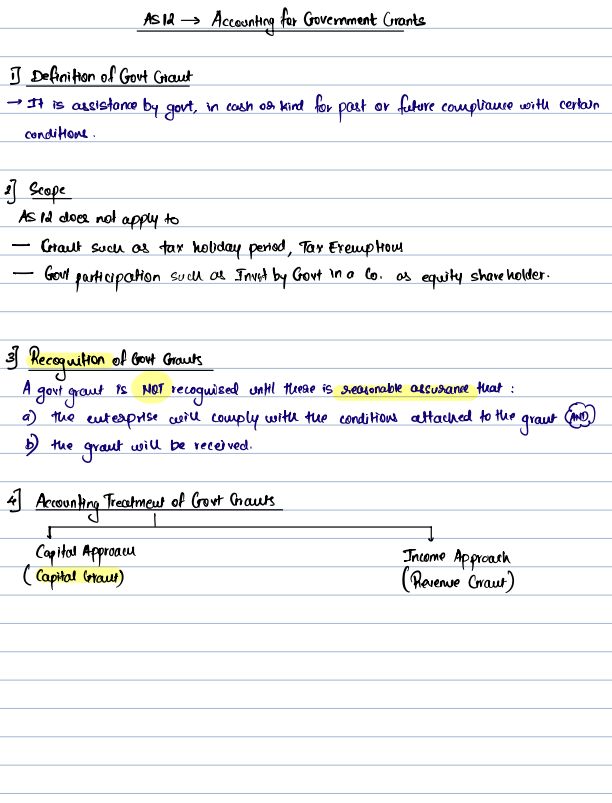 AS 12 → Accounting for Government Grants
1] Definition of Govt Grant
→ It is assistance by govt, in cash or kind for past or future compliance with certain
conditions.
2] Scope
AS 12 does not apply to
— Grant such as tax holiday period, Tax Exemptions
— Govt participation such as Invst by Govt in a Co. as equity shareholder.
3] Recognition of Govt Grants
A govt grant is NOT recognised until there is reasonable assurance that :
a) the enterprise will comply with the conditions attached to the grant AND
b) the grant will be received.
4] Accounting Treatment of Govt Grants
Capital Approach Income Approach
(Capital Grant) (Revenue Grant)